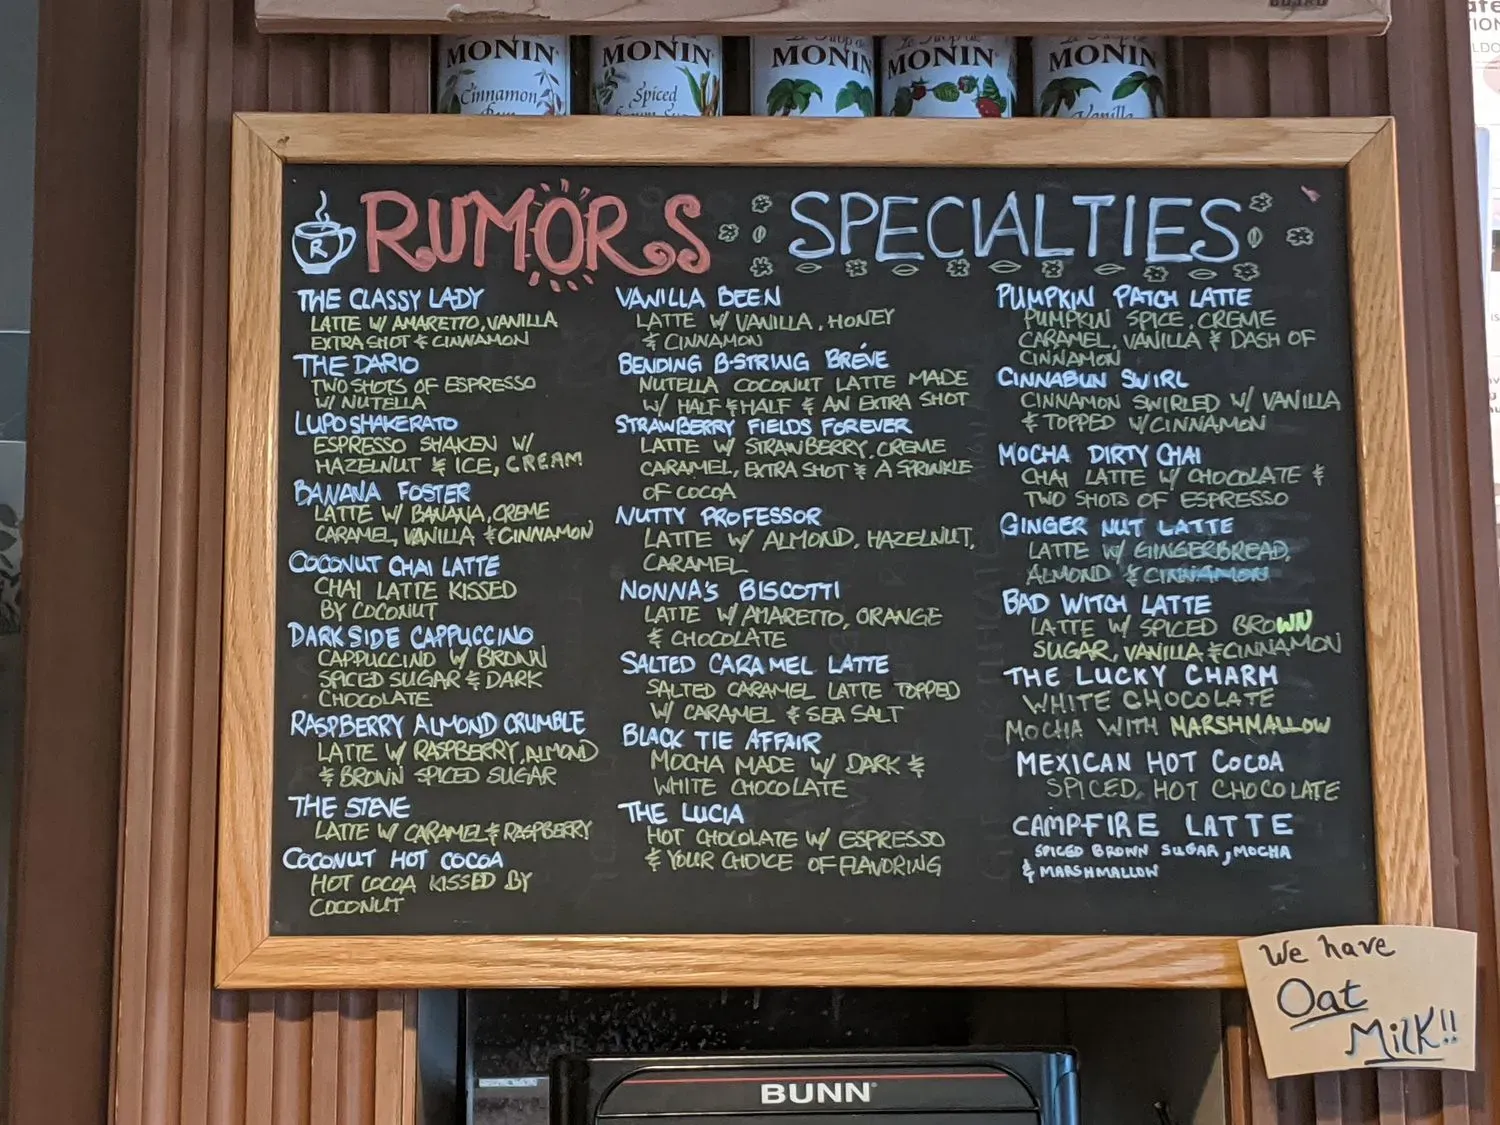 MONIN
Cinnamon
MONIN
Spiced
MONIN
MONIN
MONIN
Vanilla
R
RUMORS SPECIALTIES
THE CLASSY LADY
LATTE W/ AMARETTO, VANILLA
EXTRA SHOT & CINNAMON
THE DARIO
TWO SHOTS OF ESPRESSO
W/ NUTELLA
LUPO SHAKERATO
ESPRESSO SHAKEN W/
HAZELNUT & ICE, CREAM
BANANA FOSTER
LATTE W/ BANANA, CREME
CARAMEL, VANILLA & CINNAMON
COCONUT CHAI LATTE
CHAI LATTE KISSED
BY COCONUT
DARKSIDE CAPPUCCINO
CAPPUCCINO W/ BROWN
SPICED SUGAR & DARK
CHOCOLATE
RASPBERRY ALMOND CRUMBLE
LATTE W/ RASPBERRY, ALMOND
& BROWN SPICED SUGAR
THE STEVE
LATTE W/ CARAMEL & RASPBERRY
COCONUT HOT COCOA
HOT COCOA KISSED BY
COCONUT
VANILLA BEEN
LATTE W/ VANILLA, HONEY
& CINNAMON
BENDING B-STRING BRÉVE
NUTELLA COCONUT LATTE MADE
W/ HALF & HALF & AN EXTRA SHOT
STRAWBERRY FIELDS FOREVER
LATTE W/ STRAWBERRY, CREME
CARAMEL, EXTRA SHOT & A SPRINKLE
OF COCOA
NUTTY PROFESSOR
LATTE W/ ALMOND, HAZELNUT,
CARAMEL
NONNA'S BISCOTTI
LATTE W/ AMARETTO, ORANGE
& CHOCOLATE
SALTED CARAMEL LATTE
SALTED CARAMEL LATTE TOPPED
W/ CARAMEL & SEA SALT
BLACK TIE AFFAIR
MOCHA MADE W/ DARK &
WHITE CHOCOLATE
THE LUCIA
HOT CHOCOLATE W/ ESPRESSO
& YOUR CHOICE OF FLAVORING
PUMPKIN PATCH LATTE
PUMPKIN SPICE, CREME
CARAMEL, VANILLA & DASH OF
CINNAMON
CINNABUN SWIRL
CINNAMON SWIRLED W/ VANILLA
& TOPPED W/ CINNAMON
MOCHA DIRTY CHAI
CHAI LATTE W/ CHOCOLATE &
TWO SHOTS OF ESPRESSO
GINGER NUT LATTE
LATTE W/ GINGERBREAD,
ALMOND & CINNAMON
BAD WITCH LATTE
LATTE W/ SPICED BROWN
SUGAR, VANILLA & CINNAMON
THE LUCKY CHARM
WHITE CHOCOLATE
MOCHA WITH MARSHMALLOW
MEXICAN HOT COCOA
SPICED, HOT CHOCOLATE
CAMPFIRE LATTE
SPICED BROWN SUGAR, MOCHA
& MARSHMALLOW
We have
Oat
Milk!!
BUNN